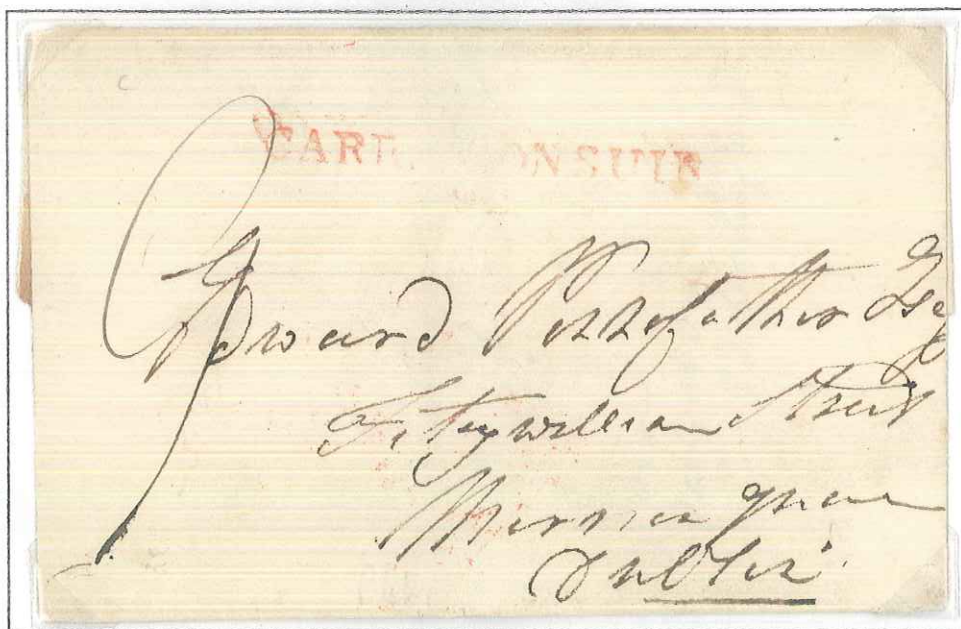 CARR ON SUIR
9
Edward Pennefather Esq
Fitzwilliam Street
Merrion Square
Dublin